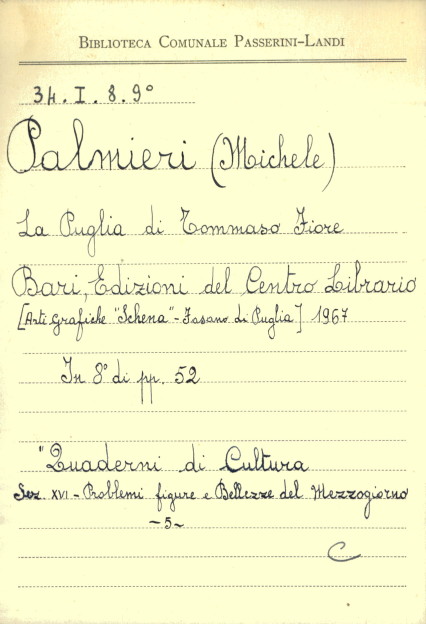 BIBLIOTECA COMUNALE PASSERINI-LANDI
34. I. 8. 9°
Palmieri (Michele)
La Puglia di Tommaso Fiore
Bari, Edizioni del Centro Librario
[Arti Grafiche "Schena" - Fasano di Puglia] 1967
In 8° di pp. 52
"Quaderni di Cultura
Sez. XVI - Problemi figure e Bellezze del Mezzogiorno
- 5 -
C